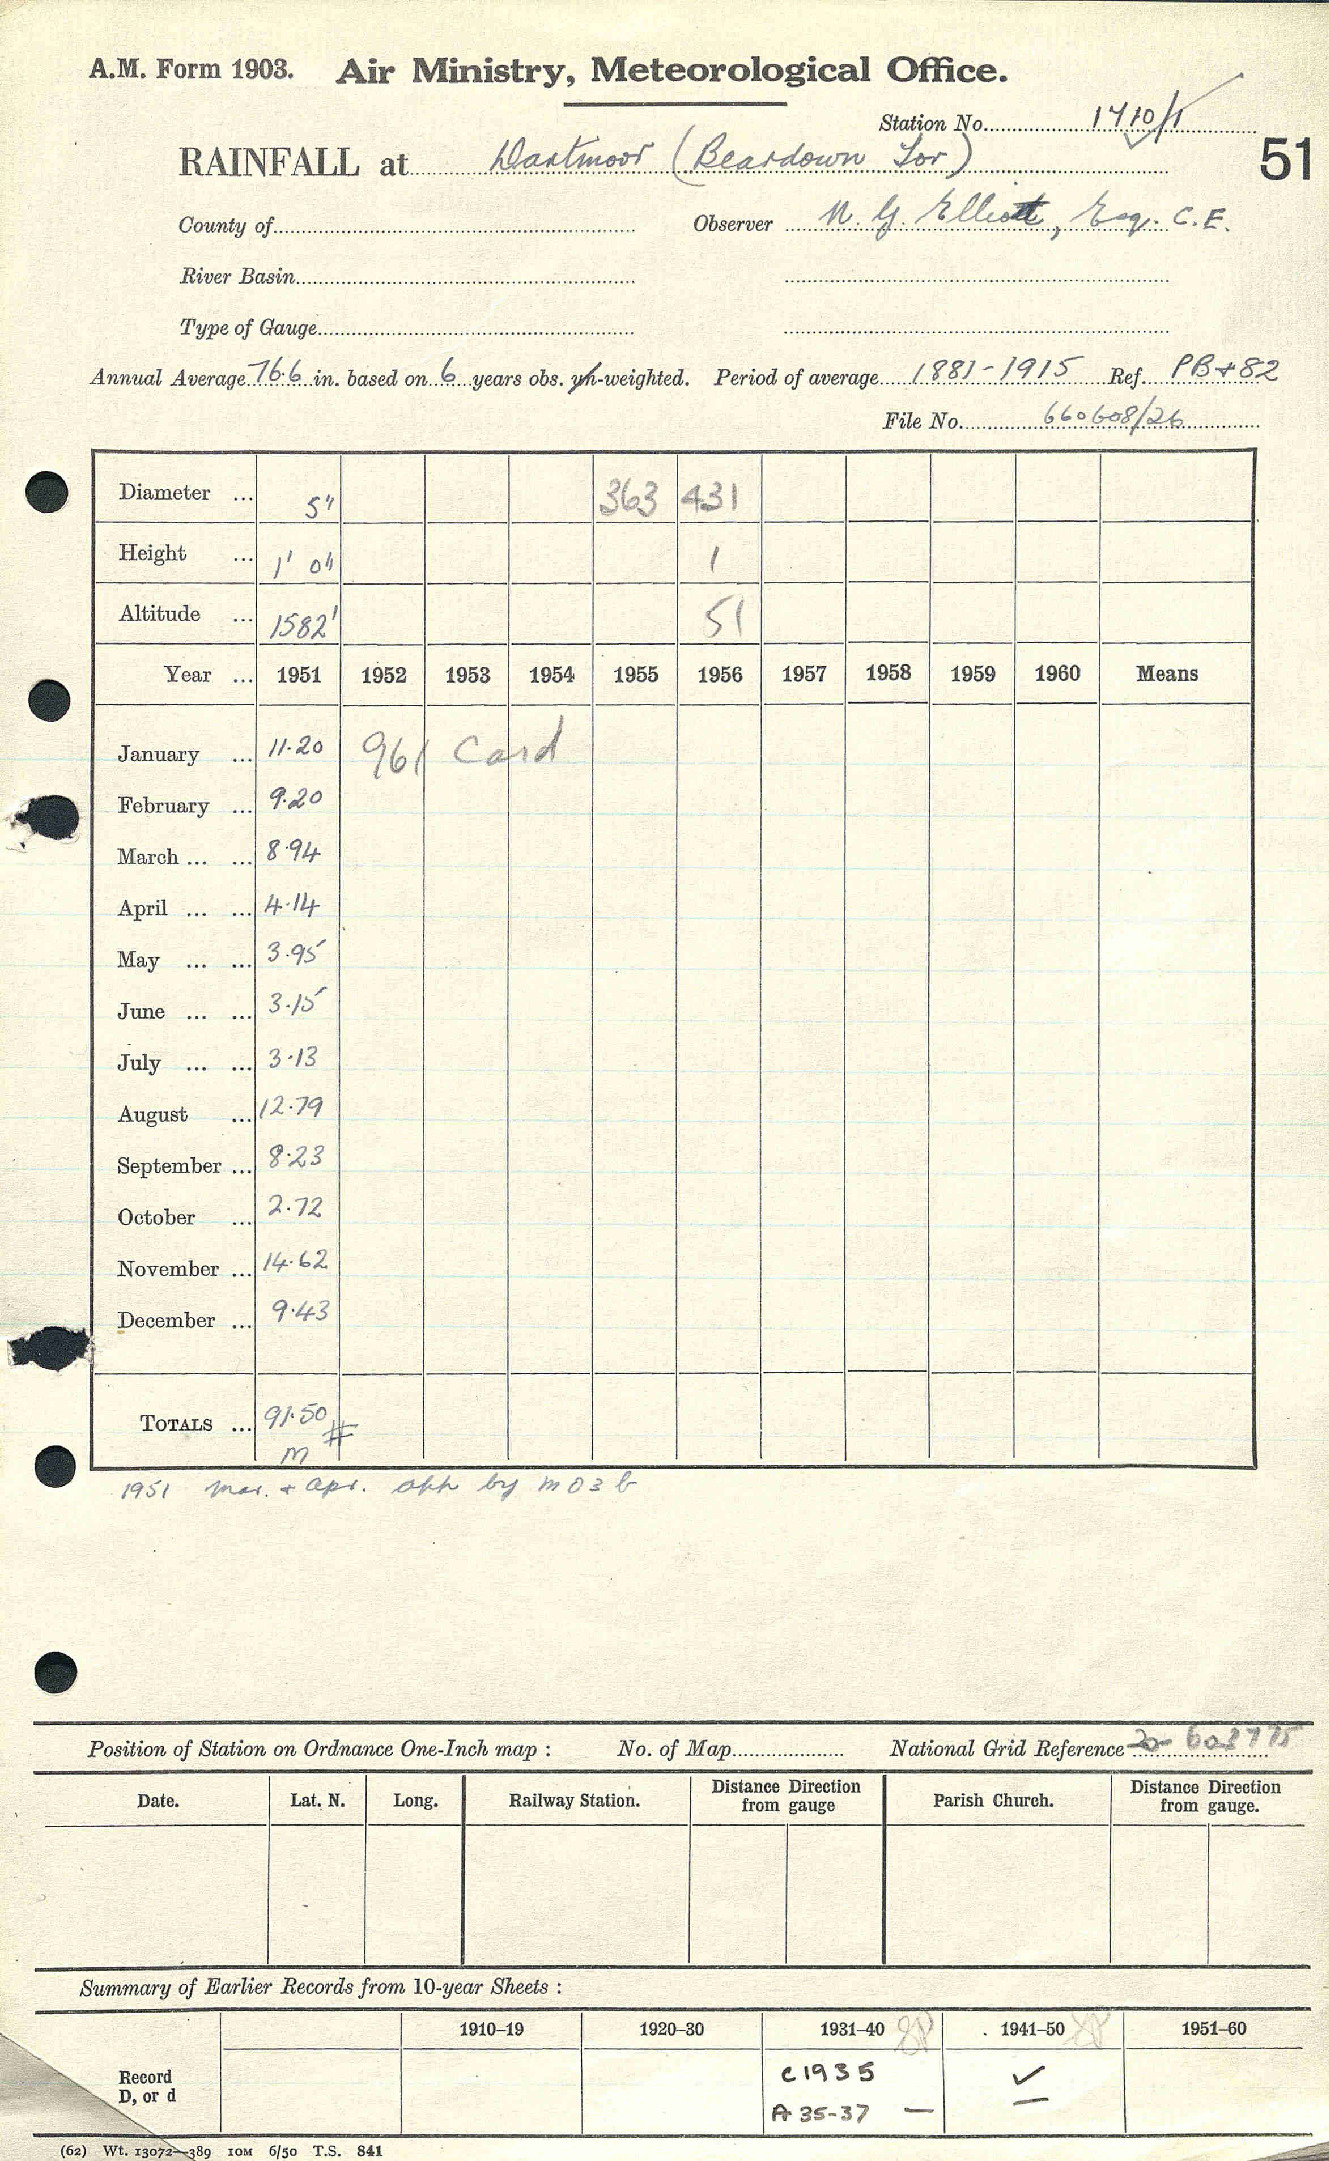 A.M. Form 1903. Air Ministry, Meteorological Office.
Station No. 1710/1
RAINFALL at Dartmoor (Beardown Tor) 51
County of Observer N. G. Elliott, Esq. C.E.
River Basin
Type of Gauge
Annual Average 76.6 in. based on 6 years obs. -weighted. Period of average 1881-1915 Ref. PB+82
File No. 660608/26
Diameter ... 5" 363 431
Height ... 1' 0" 1
Altitude ... 1582' 51
Year ... 1951 1952 1953 1954 1955 1956 1957 1958 1959 1960 Means
January ... 11.20 961 Card
February ... 9.20
March ... ... 8.94
April ... ... 4.14
May ... ... 3.95
June ... ... 3.15
July ... ... 3.13
August ... 12.79
September ... 8.23
October ... 2.72
November ... 14.62
December ... 9.43
TOTALS ... 91.50 #
m
1951 Mar. + Apr. by MO3b
Position of Station on Ordnance One-Inch map : No. of Map National Grid Reference 20 603775
Date. Lat. N. Long. Railway Station. Distance Direction from gauge Parish Church. Distance Direction from gauge.
Summary of Earlier Records from 10-year Sheets :
1910–19 1920–30 1931–40 1941–50 1951–60
Record C1935 ✓
D, or d A 35-37 — —
(62) Wt. 13072—389 10M 6/50 T.S. 841